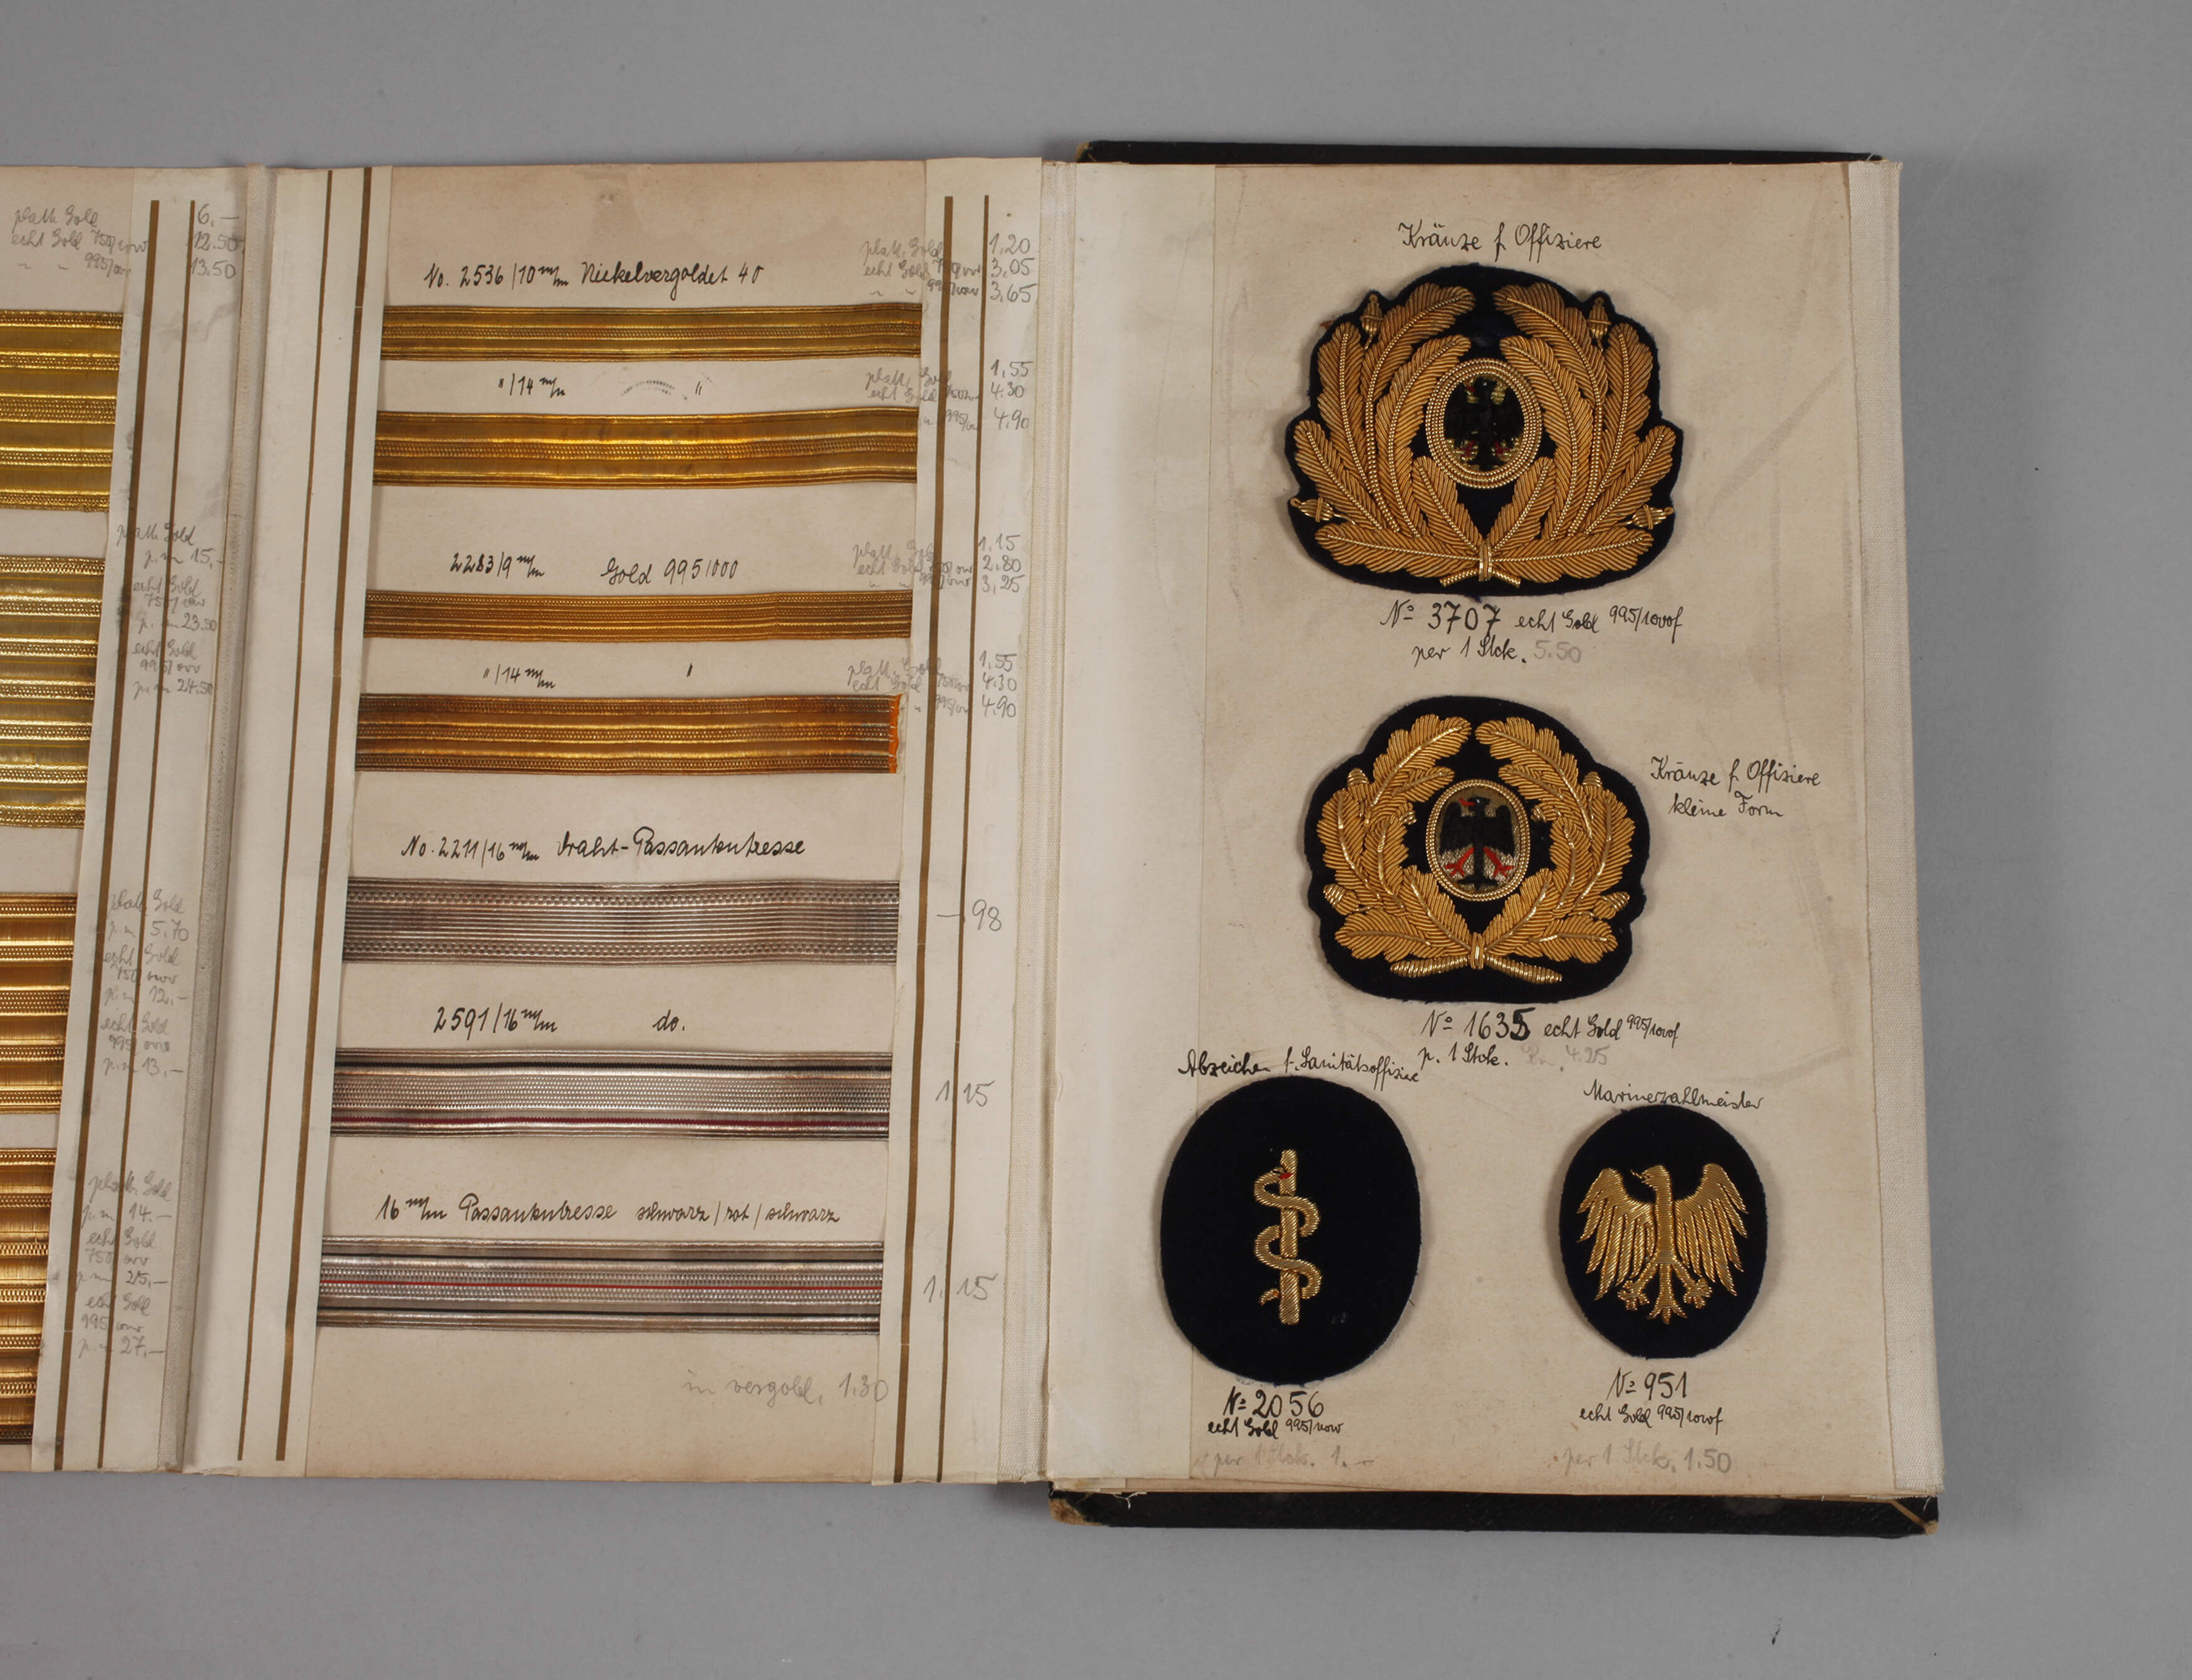 platt. Gold 6.—
echt Gold 750/000 12.50
" " 995/000 13.50
platt. Gold
p. m 15.—
echt Gold
750/000
p. m 23.50
echt Gold
995/000
p. m 24.50
platt. Gold
p. m 5.70
echt Gold
750/000
p. m 12.—
echt Gold
995/000
p. m 13.—
platt. Gold
p. m 14.—
echt Gold
750/000
p. m 25.—
echt Gold
995/000
p. m 27.—
No. 2536/10 m/m Nickelvergoldet 40
platt. Gold 1.20
echt Gold 750/000 3.05
" " 995/000 3.65
" /14 m/m "
platt. Gold 1.55
echt Gold 750/000 4.30
" 995/000 4.90
2283/9 m/m Gold 995/000
platt. Gold 1.15
echt Gold 750/000 2.80
" " 995/000 3.25
" /14 m/m "
platt. Gold 1.55
echt Gold 750/000 4.30
" 995/000 4.90
No. 2211/16 m/m Draht-Passantentresse
— 98
2591/16 m/m do.
1.15
16 m/m Passantentresse schwarz/rot/schwarz
1.15
in vergold. 1.30
Kränze f. Offiziere
No 3707 echt Gold 995/000f
per 1 Stck. 5.50
Kränze f. Offiziere
kleine Form
No 1635 echt Gold 995/000f
p. 1 Stck. 4.25
Abzeichen f. Sanitätsoffiziere
No 2056
echt Gold 995/000
per 1 Stck. 1.—
Marinezahlmeister
No 951
echt Gold 995/000f
per 1 Stck. 1.50